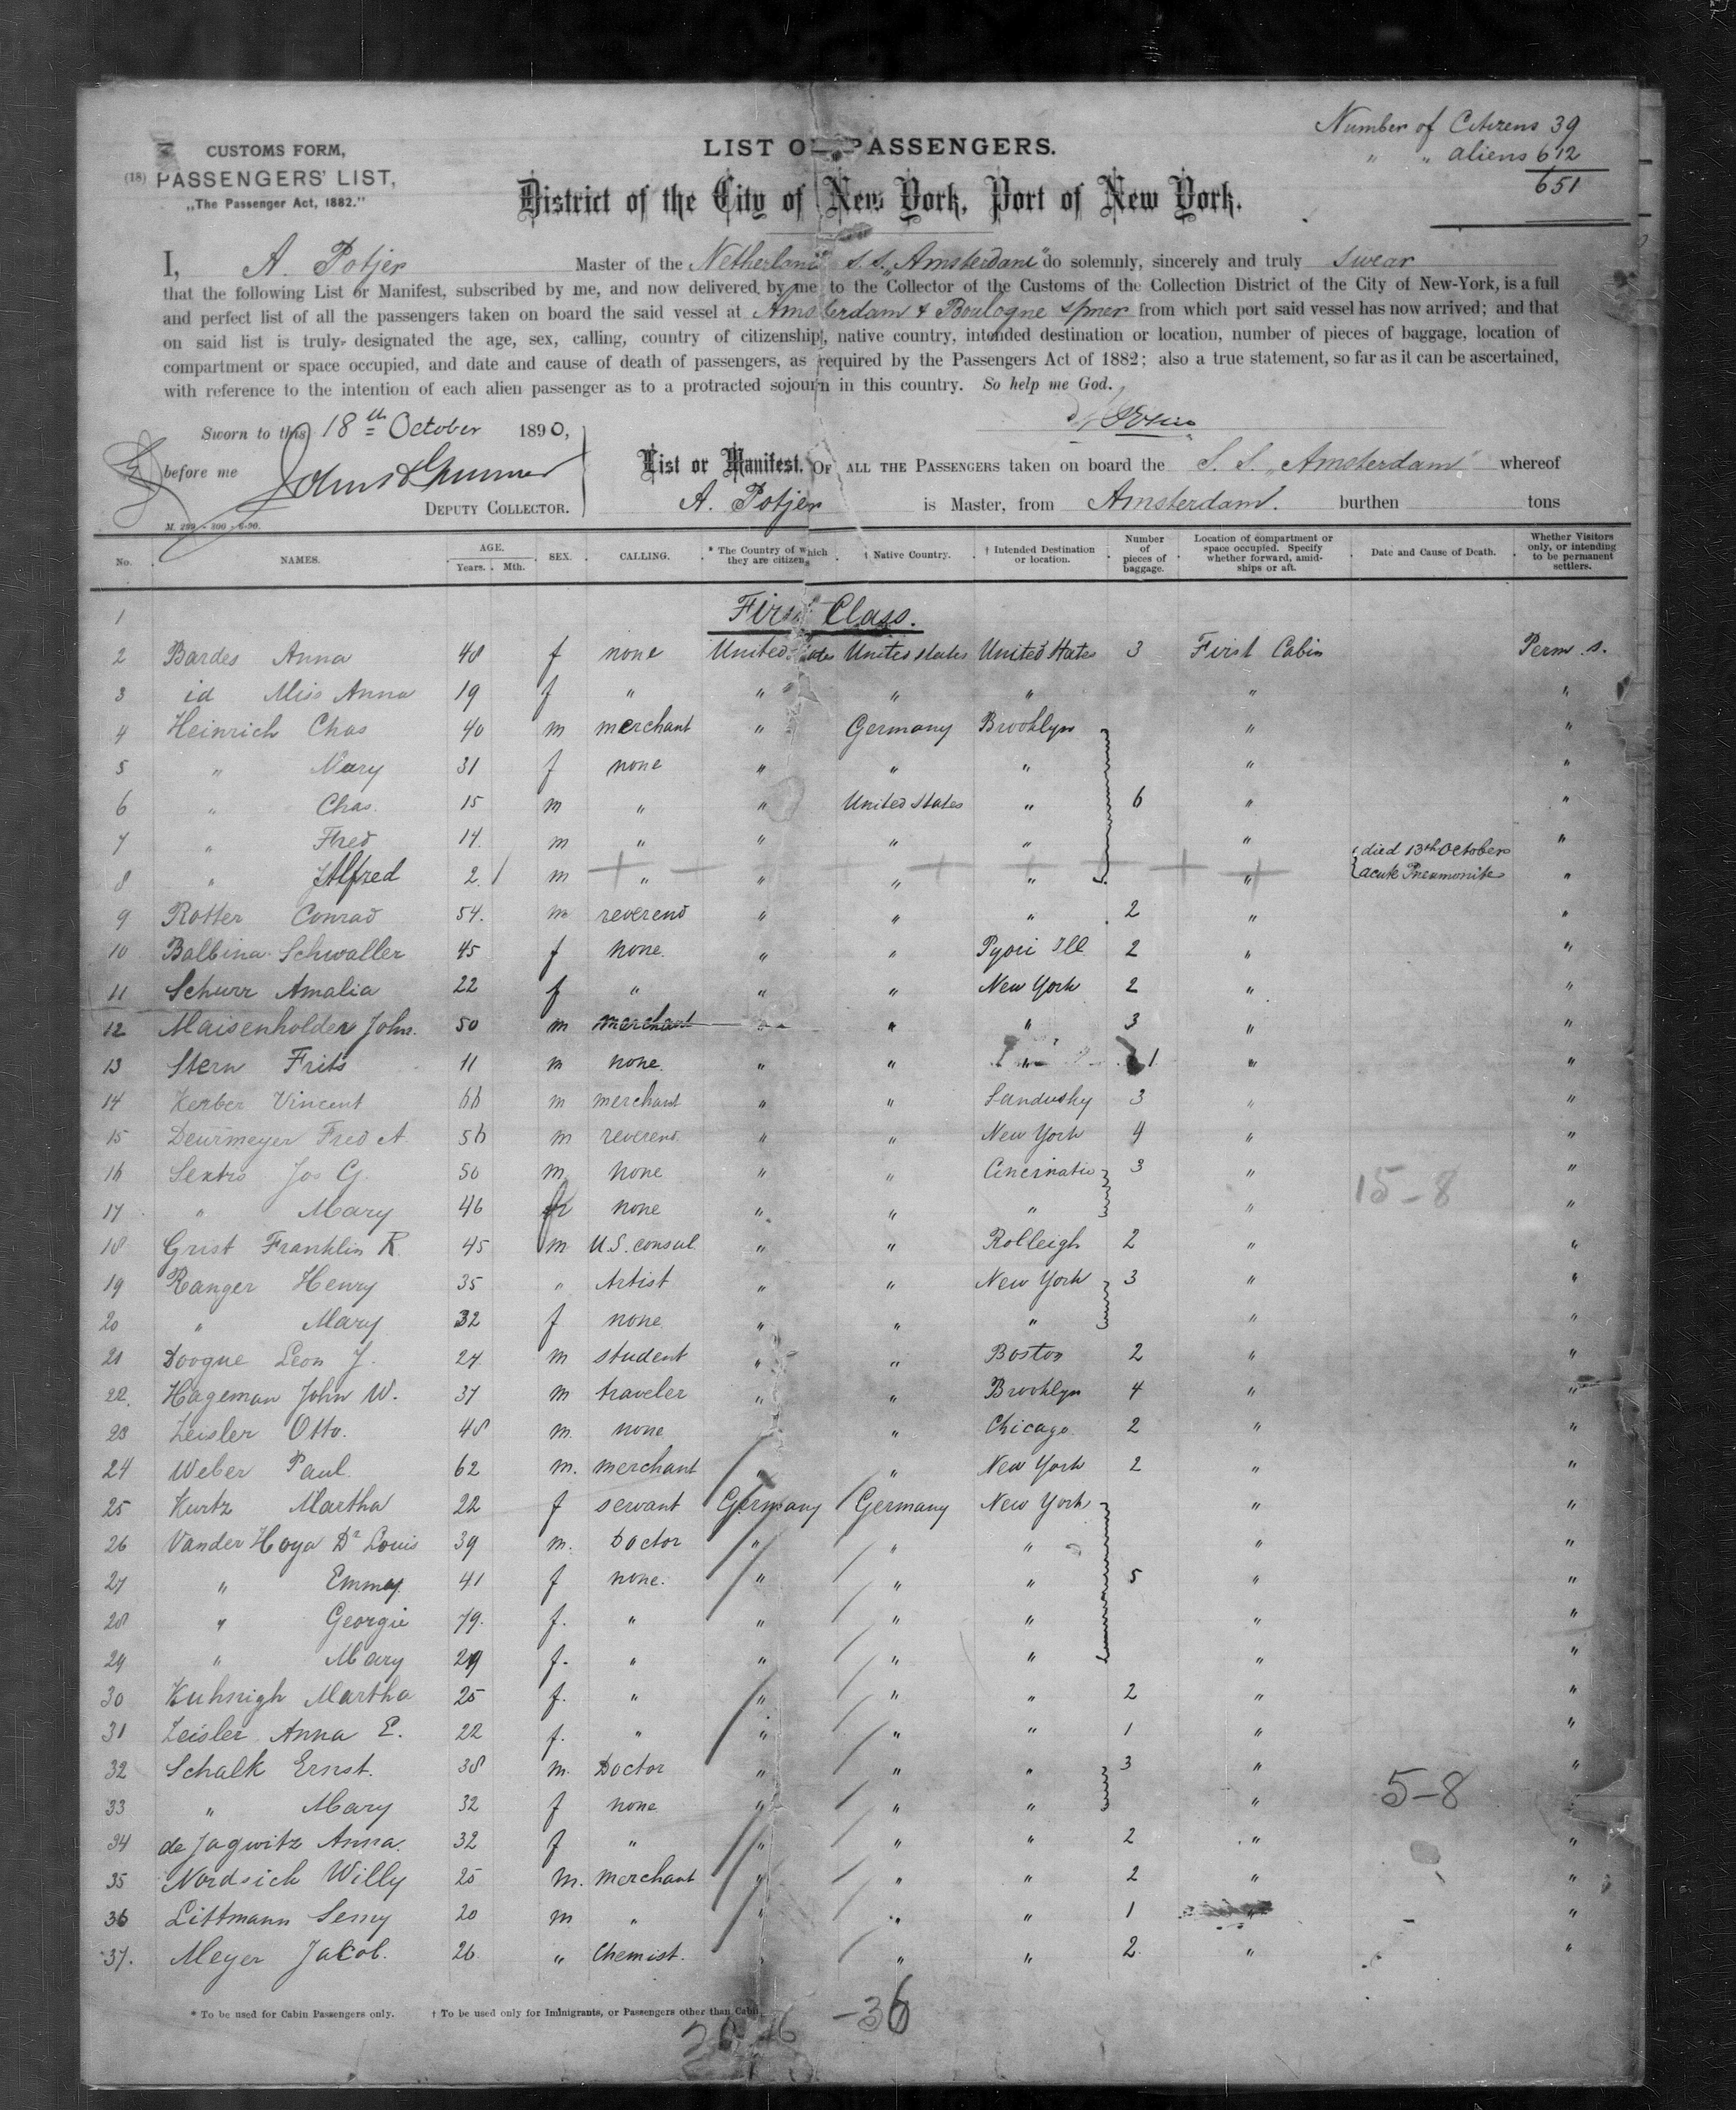 Number of Citizens 39
" " aliens 612
651
CUSTOMS FORM,
(18) PASSENGERS' LIST,
„The Passenger Act, 1882."
LIST OF PASSENGERS.
District of the City of New York, Port of New York.
I, A. Potjer Master of the Netherland S.S. „Amsterdam" do solemnly, sincerely and truly swear
that the following List or Manifest, subscribed by me, and now delivered by me to the Collector of the Customs of the Collection District of the City of New-York, is a full
and perfect list of all the passengers taken on board the said vessel at Amsterdam & Boulogne s/mer from which port said vessel has now arrived; and that
on said list is truly designated the age, sex, calling, country of citizenship, native country, intended destination or location, number of pieces of baggage, location of
compartment or space occupied, and date and cause of death of passengers, as required by the Passengers Act of 1882; also a true statement, so far as it can be ascertained,
with reference to the intention of each alien passenger as to a protracted sojourn in this country. So help me God.
Sworn to this 18th October 1890,
before me
DEPUTY COLLECTOR.
M. 299 - 800 - 6-90.
List or Manifest. OF ALL THE PASSENGERS taken on board the S. S. „Amsterdam" whereof
A. Potjer is Master, from Amsterdam. burthen tons
No. NAMES. AGE. Years. Mth. SEX. CALLING. * The Country of which they are citizens † Native Country. † Intended Destination or location. Number of pieces of baggage. Location of compartment or space occupied. Specify whether forward, amidships or aft. Date and Cause of Death. Whether Visitors only, or intending to be permanent settlers.
1 First Class.
2 Bardes Anna 48 f none United States United States United States 3 First Cabin Perm. s.
3 id Miss Anna 19 f " " " " " "
4 Heinrich Chas 40 m merchant " Germany Brooklyn " "
5 " Mary 31 f none " " " " "
6 " Chas. 15 m " " United States " 6 " "
7 " Fred 14 m " " " " " "
8 " Alfred 2 m " " " " " died 13th October acute Pneumonite "
9 Rotter Conrad 54. m reverend " " " 2 " "
10 Balbina Schwaller 45 f none. " " Pyori Ill 2 " "
11 Schurr Amalia 22 f " " " New York 2 " "
12 Maisenholder John. 50 m merchant " " " 3 " "
13 Stern Frits 11 m none. " " " 1 " "
14 Kerber Vincent 66 m merchant " " Sandusky 3 " "
15 Deurmeyer Fred A. 56 m reverend " " New York 4 " "
16 Sextro Jos G. 50 m none " " Cincinatie 3 " "
15-8
17 " Mary 46 none " " " " "
18 Grist Franklin R. 45 m U.S. consul " " Rolleigh 2 " "
19 Ranger Henry 35 " Artist " " New York 3 " "
20 " Mary 32 f none " " " " "
21 Doogue Leon J. 24 m student " " Boston 2 " "
22. Hageman John W. 37 m traveler " " Brooklyn 4 " "
23 Zeisler Otto. 48 m. none " Chicago 2 " "
24 Weber Paul. 62 m. merchant " " New York 2 " "
25 Kurtz Martha 22 f servant Germany Germany New York " "
26 Vander Hoya Dr Louis 39 m. Doctor " " " " "
27 " Emmy. 41 f none. " " " 5 " "
28 " Georgie 79. f. " " " " " "
29 " Mary 29 f. " " " " " "
30 Kuhnigh Martha 25 f. " " " " 2 " "
31 Zeisler Anna E. 22 f. " " " " 1 " "
32 Schalk Ernst. 38 m. Doctor " " " 3 " "
5-8
33 " Mary 32 f none " " " "
34 de Jagwitz Anna. 32 f " " " " 2 " "
35 Nordsick Willy 25 m. merchant " " " 2 " "
36 Littmann Semy 20 m " " " " 1 " "
37. Meyer Jacob. 26 " Chemist. " " " 2. " "
* To be used for Cabin Passengers only. † To be used only for Immigrants, or Passengers other than Cabin
-36